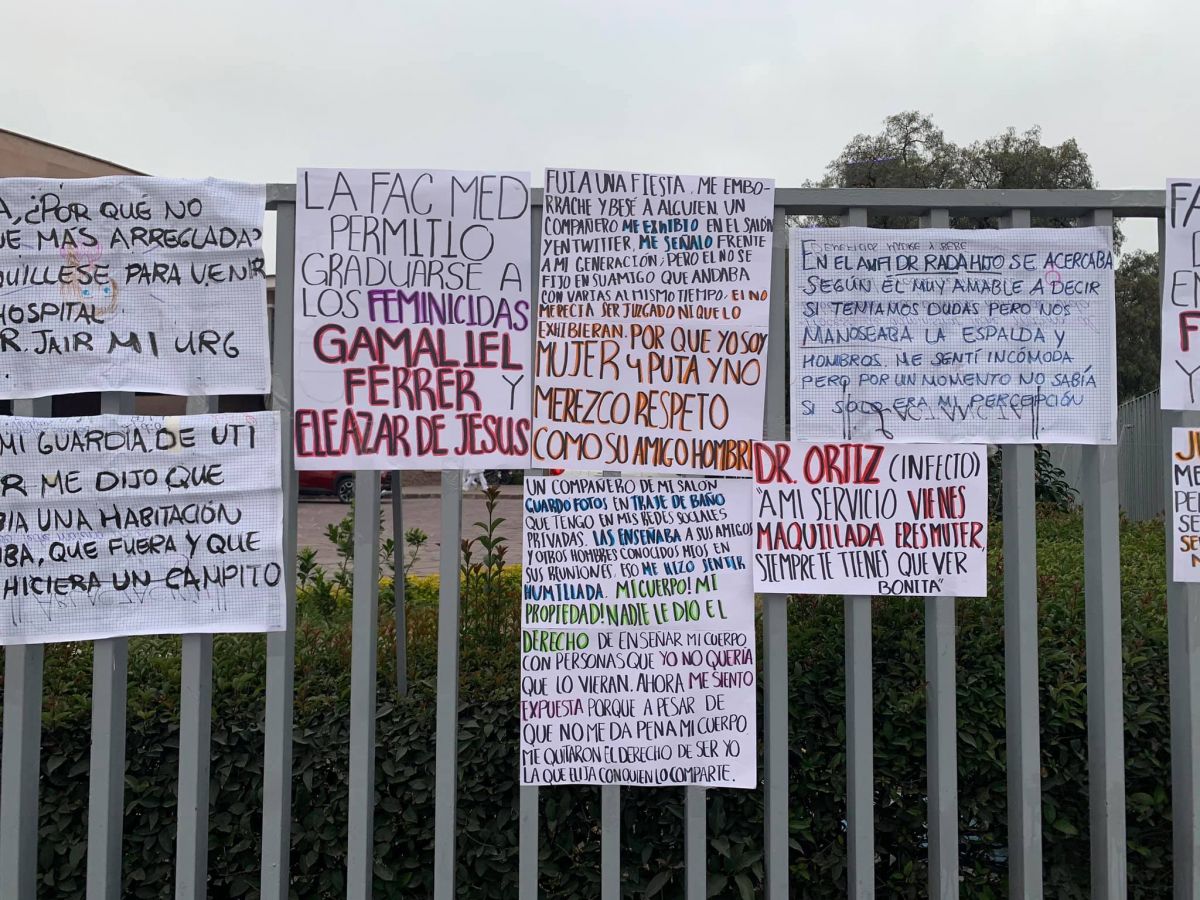 A, ¿POR QUÉ NO
UE MÁS ARREGLADA?
QUILLESE PARA VENIR
HOSPITAL
R. JAIR MI URG
MI GUARDIA DE UTI
R ME DIJO QUE
BIA UNA HABITACIÓN
BA, QUE FUERA Y QUE
HICIERA UN CAMPITO
LA FAC MED
PERMITIO
GRADUARSE A
LOS FEMINICIDAS
GAMALIEL
FERRER Y
ELEAZAR DE JESUS
FUI A UNA FIESTA, ME EMBO-
RRACHE Y BESÉ A ALGUIEN. UN
COMPAÑERO ME EXHIBIO EN EL SALÓN
Y EN TWITTER, ME SEÑALO FRENTE
A MI GENERACIÓN, PERO EL NO SE
FIJO EN SU AMIGO QUE ANDABA
CON VARIAS AL MISMO TIEMPO. EL NO
MERECIA SER JUZGADO NI QUE LO
EXHIBIERAN. POR QUE YO SOY
MUJER Y PUTA Y NO
MEREZCO RESPETO
COMO SU AMIGO HOMBRE
UN COMPAÑERO DE MI SALON
GUARDO FOTOS EN TRAJE DE BAÑO
QUE TENGO EN MIS REDES SOCIALES
PRIVADAS. LAS ENSEÑABA A SUS AMIGOS
Y OTROS HOMBRES CONOCIDOS MIOS EN
SUS REUNIONES. ESO ME HIZO SENTIR
HUMILLADA. MI CUERPO! MI
PROPIEDAD! NADIE LE DIO EL
DERECHO DE ENSEÑAR MI CUERPO
CON PERSONAS QUE YO NO QUERIA
QUE LO VIERAN. AHORA ME SIENTO
EXPUESTA PORQUE A PESAR DE
QUE NO ME DA PENA MI CUERPO
ME QUITARON EL DERECHO DE SER YO
LA QUE ELIJA CON QUIEN LO COMPARTE.
EN EL ANFI DR RADA HIJO SE ACERCABA
SEGÚN ÉL MUY AMABLE A DECIR
SI TENÍAMOS DUDAS PERO NOS
MANOSEABA LA ESPALDA Y
HOMBROS. ME SENTÍ INCÓMODA
PERO POR UN MOMENTO NO SABÍA
SI SOLO ERA MI PERCEPCIÓN
DR. ORTIZ (INFECTO)
"A MI SERVICIO VIENES
MAQUILLADA ERES MUJER,
SIEMPRE TIENES QUE VER
BONITA"
FA